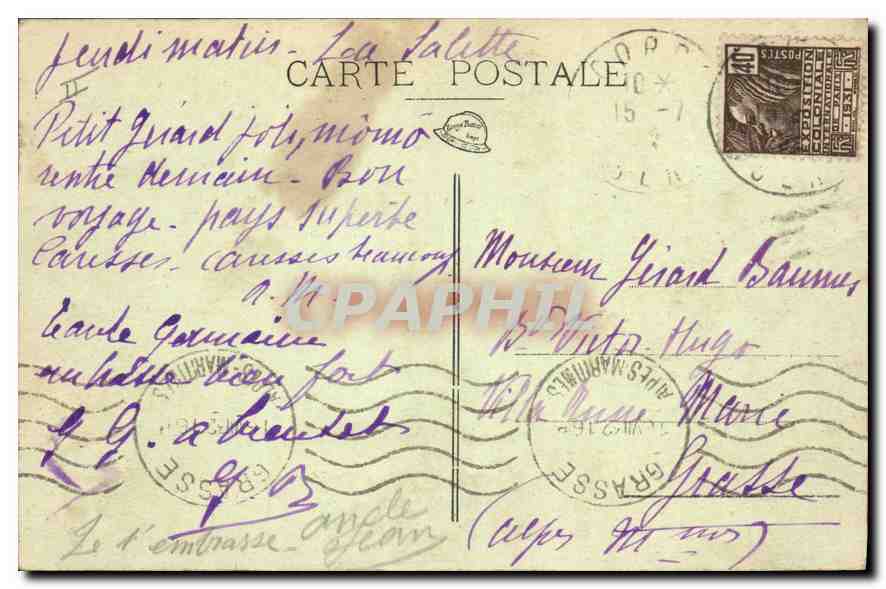 Jeudi matin - La Salette
CARTE POSTALE
II
Petit Gérard joli, mômô
rentre demain - Bon
voyage - pays superbe
Caresses - caresses beaucoup
a. M.
Tante Germaine
embrasse bien fort
G G. a bientot
G B
Je t'embrasse - oncle
Jean
Monsieur Gérard Baumes
Bd Victor Hugo
Villa Anne Marie
Grasse
(Alpes Mmes)
CORPS
10 *
15 - 7
40c
POSTES
EXPOSITION
COLONIALE
INTERNATIONALE
DE PARIS
1931
GRASSE
ALPES MARITIMES
GRASSE
ALPES MARITIMES
CPAPHIL